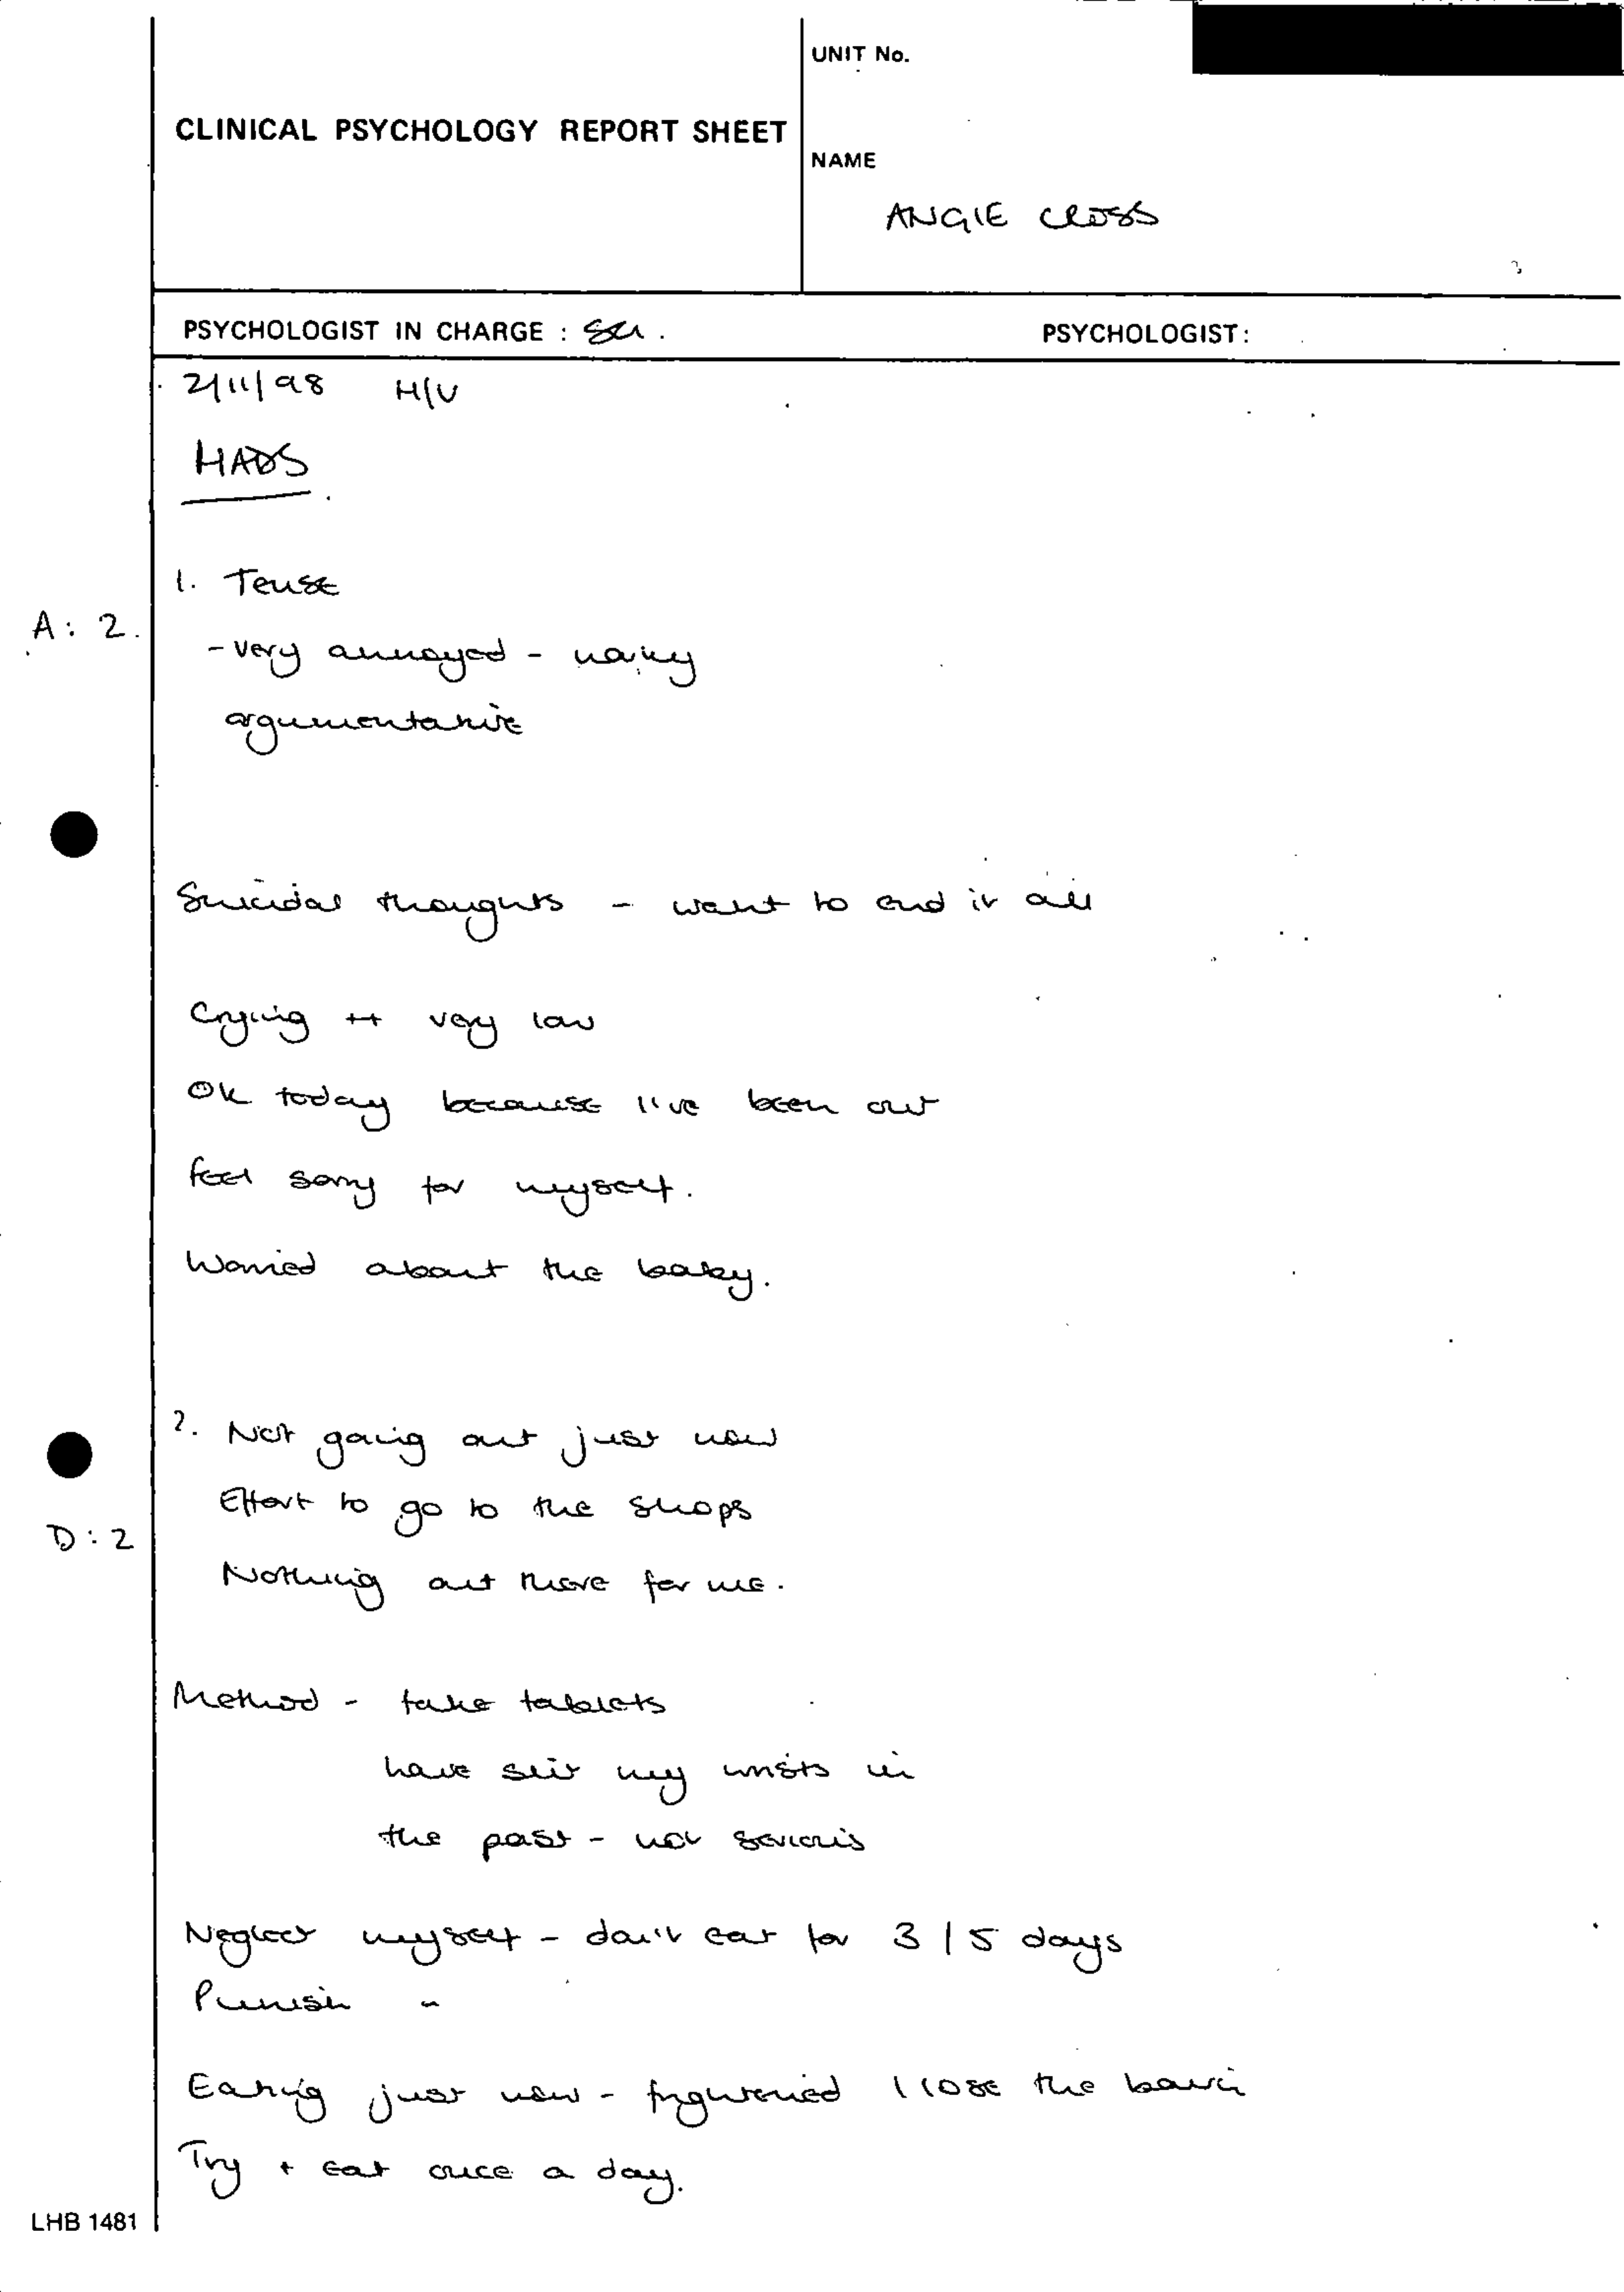 UNIT No.
CLINICAL PSYCHOLOGY REPORT SHEET
NAME
ANGIE CROSS
PSYCHOLOGIST IN CHARGE :
PSYCHOLOGIST:
2/11/98 H/V
HADS
1. Tense
A: 2.
- very annoyed -
argumentative
Suicidal thoughts - want to end it all
Crying ++ very low
OK today because I've been out
feel sorry for myself.
Worried about the baby.
2. Not going out just now
Effort to go to the shops
D: 2
Nothing out there for me.
Method - take tablets
have slit my wrists in
the past - not serious
Neglect myself - don't eat for 3/5 days
Punish "
Eating just now - frightened I lose the
Try + eat once a day.
LHB 1481